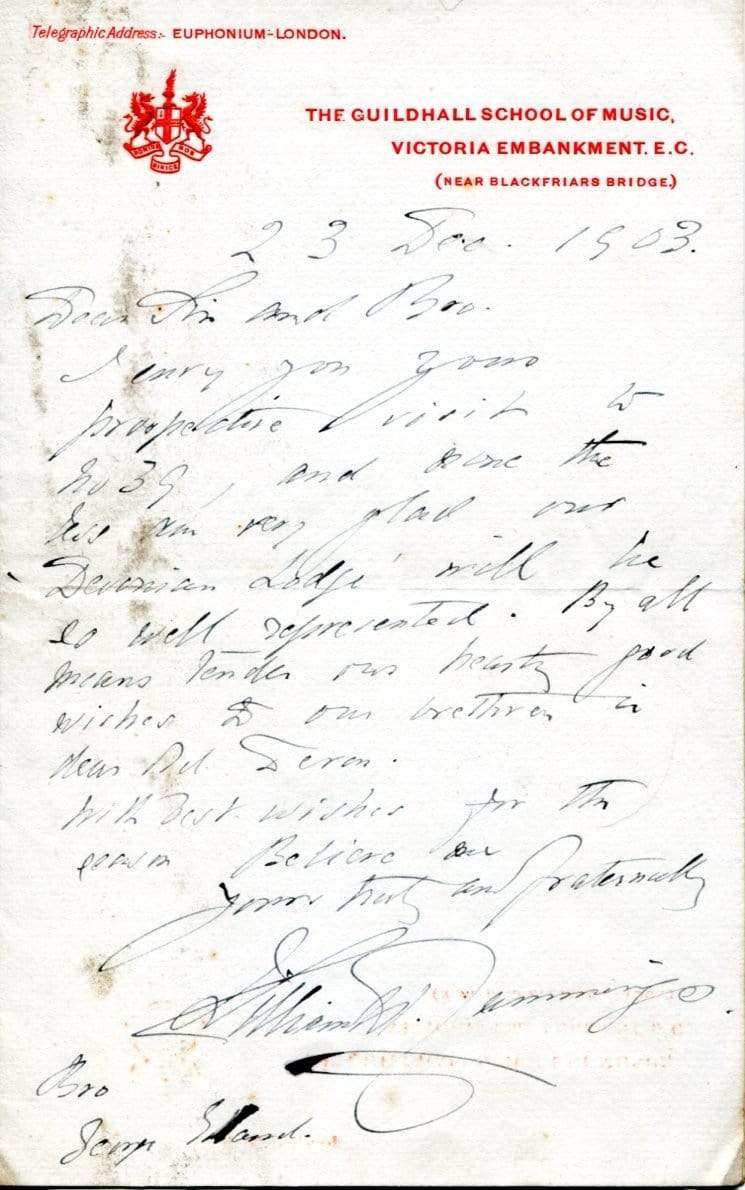 Telegraphic Address:- EUPHONIUM-LONDON.
THE GUILDHALL SCHOOL OF MUSIC,
VICTORIA EMBANKMENT. E.C.
(NEAR BLACKFRIARS BRIDGE.)
DOMINE NOS
DIRIGE
23 Dec. 1903.
Dear Sir and Bro.
I envy you your
prospective visit to
No 39, and none the
less am very glad our
Devonian Lodge will be
so well represented. By all
means tender our hearty good
wishes to our brethren in
dear old Devon.
With best wishes for the
season Believe me
yours truly and fraternally
William H. Cummings.
Bro
George